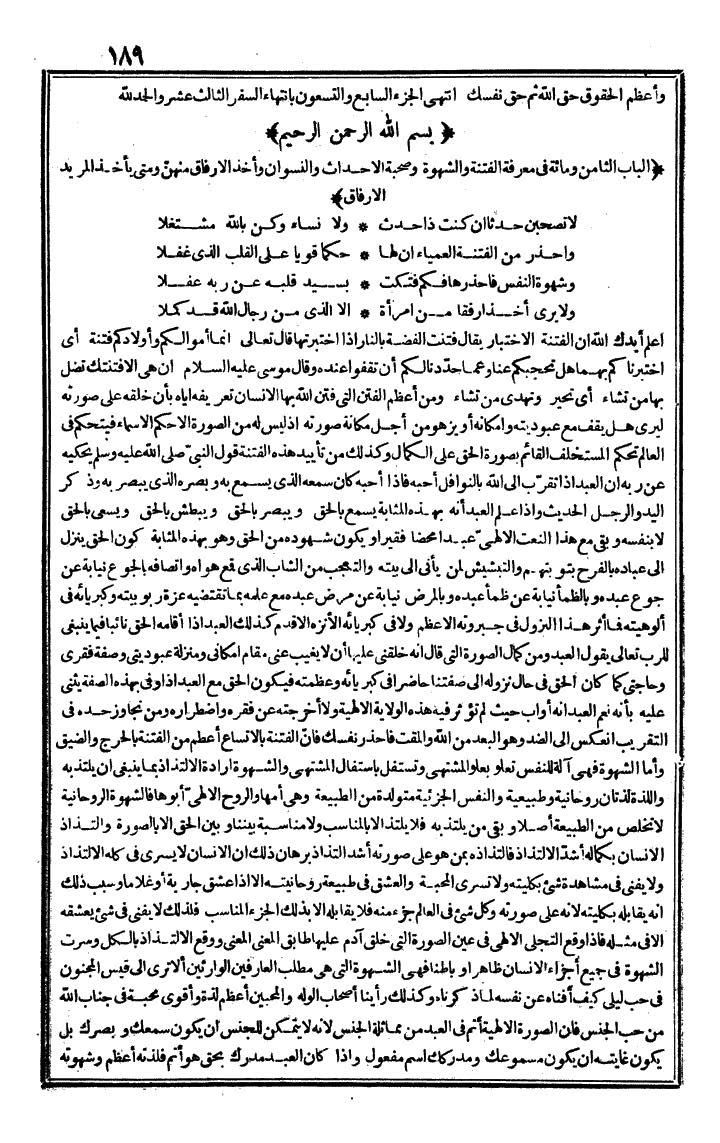 ١٨٩
وأعظم الحقوق حق الله ثم حق نفسك انتهى الجزء السابع والتسعون بانتهاء السفر الثالث عشر والحمد لله
﴿بسم الله الرحمن الرحيم﴾
﴿الباب الثامن ومائة فى معرفة الفتنة والشهوة وصحبة الاحداث والنسوان وأخذ الارفاق منهن ومتى يأخذ المريد
الارفاق﴾
لا تصحبن حدثا ان كنت ذا حدث * ولا نساء وكن بالله مشتغلا
واحذر من الفتنة العمياء ان لها * حكما قويا على القلب الذى غفلا
وشهوة النفس فاحذرها فكم فتكت * بسيد قلبه عن ربه عفلا
ولا يرى أخذا رفقا من امرأة * الا الذى من رجال الله قد كملا
اعلم أيدك الله ان الفتنة الاختبار يقال فتنت الفضة بالنار اذا اختبرتها قال تعالى انما أموالكم وأولادكم فتنة أى
اختبرناكم بهما هل تحجبكم عنا وعما حددنا لكم أن تقفوا عنده وقال موسى عليه السلام ان هى الا فتنتك تضل
بها من تشاء أى تحير وتهدى من تشاء ومن أعظم الفتن التى فتن الله بها الانسان تعريفه اياه بأن خلقه على صورته
ليرى هل يقف مع عبوديته وامكانه أو يزهو من أجل مكانة صورته اذ ليس له من الصورة الا حكم الاسماء فيتحكم فى
العالم تحكم المستخلف القائم بصورة الحق على الكمال وكذلك من تأييد هذه الفتنة قول النبى صلى الله عليه وسلم يحكيه
عن ربه ان العبد اذا تقرب الى الله بالنوافل أحبه فاذا أحبه كان سمعه الذى يسمع به وبصره الذى يبصر به وذكر
اليد والرجل الحديث واذا علم العبد أنه بهذه المثابة يسمع بالحق ويبصر بالحق ويبطش بالحق ويسعى بالحق
لا بنفسه وبقى مع هذا النعت الالهى عبدا محضا فقيرا ويكون شهوده من الحق وهو بهذه المثابة كون الحق ينزل
الى عباده بالفرح بتوبتهم والتبشيش لمن يأتى الى بيته والتعجب من الشاب الذى قمع هواه واتصافه بالجوع نيابة عن
جوع عبده وبالظمأ نيابة عن ظمأ عبده وبالمرض نيابة عن مرض عبده مع علمه بما تقتضيه عزة ربوبيته وكبريائه فى
ألوهيته فما أثر هذا النزول فى جبروته الاعظم ولا فى كبريائه الأنزه الاقدم كذلك العبد اذا أقامه الحق نائبا فيما ينبغى
للرب تعالى يقول العبد ومن كمال الصورة التى قال انه خلقنى عليها أن لا يغيب عنى مقام امكانى ومنزلة عبوديتى وصفة فقرى
وحاجتى كما كان الحق فى حال نزوله الى صفتنا حاضرا فى كبريائه وعظمته فيكون الحق مع العبد اذا وفى بهذه الصفة يثنى
عليه بأنه نعم العبد انه أواب حيث لم تؤثر فيه هذه الولاية الالهية ولا أخرجته عن فقره واضطراره ومن تجاوز حده فى
التقريب انعكس الى الضد وهو البعد من الله والمقت فاحذر نفسك فان الفتنة بالاتساع أعظم من الفتنة بالحرج والضيق
وأما الشهوة فهى آلة للنفس تعلو بعلو المشتهى وتستفل باستفال المشتهى والشهوة ارادة الالتذاذ بما ينبغى ان يلتذ به
واللذة لذتان روحانية وطبيعية والنفس الجزئية متولدة من الطبيعة وهى أمها والروح الالهى أبوها فالشهوة الروحانية
لا تخلص من الطبيعة أصلا وبقى من يلتذ به فلا يلتذ الا بالمناسب ولا مناسبة بيننا وبين الحق الا بالصورة والتذاذ
الانسان بكماله أشد الالتذاذ فالتذاذه بمن هو على صورته أشد التذاذ برهان ذلك ان الانسان لا يسرى فى كله الالتذاذ
ولا يفنى فى مشاهدة شئ بكليته ولا تسرى المحبة والعشق فى طبيعة روحانيته الا اذا عشق جارية أو غلاما وسبب ذلك
انه يقابله بكليته لانه على صورته وكل شئ فى العالم جزء منه فلا يقابله الا بذلك الجزء المناسب فلذلك لا يفنى فى شئ يعشقه
الا فى مثله فاذا وقع التجلى الالهى فى عين الصورة التى خلق آدم عليها طابق المعنى المعنى ووقع الالتذاذ بالكل وسرت
الشهوة فى جميع أجزاء الانسان ظاهرا وباطنا فهى الشهوة التى هى مطلب العارفين الوارثين ألا ترى الى قيس المجنون
فى حب ليلى كيف أفناه عن نفسه لما ذكرناه وكذلك رأينا أصحاب الوله والمحبين أعظم لذة وأقوى محبة فى جناب الله
من حب الجنس فان الصورة الالهية أتم فى العبد من مماثلة الجنس لانه لا يتمكن للجنس ان يكون سمعك وبصرك بل
يكون غايته ان يكون مسموعك ومدركك اسم مفعول واذا كان العبد مدرك بحق هو أتم فلذته أعظم وشهوته